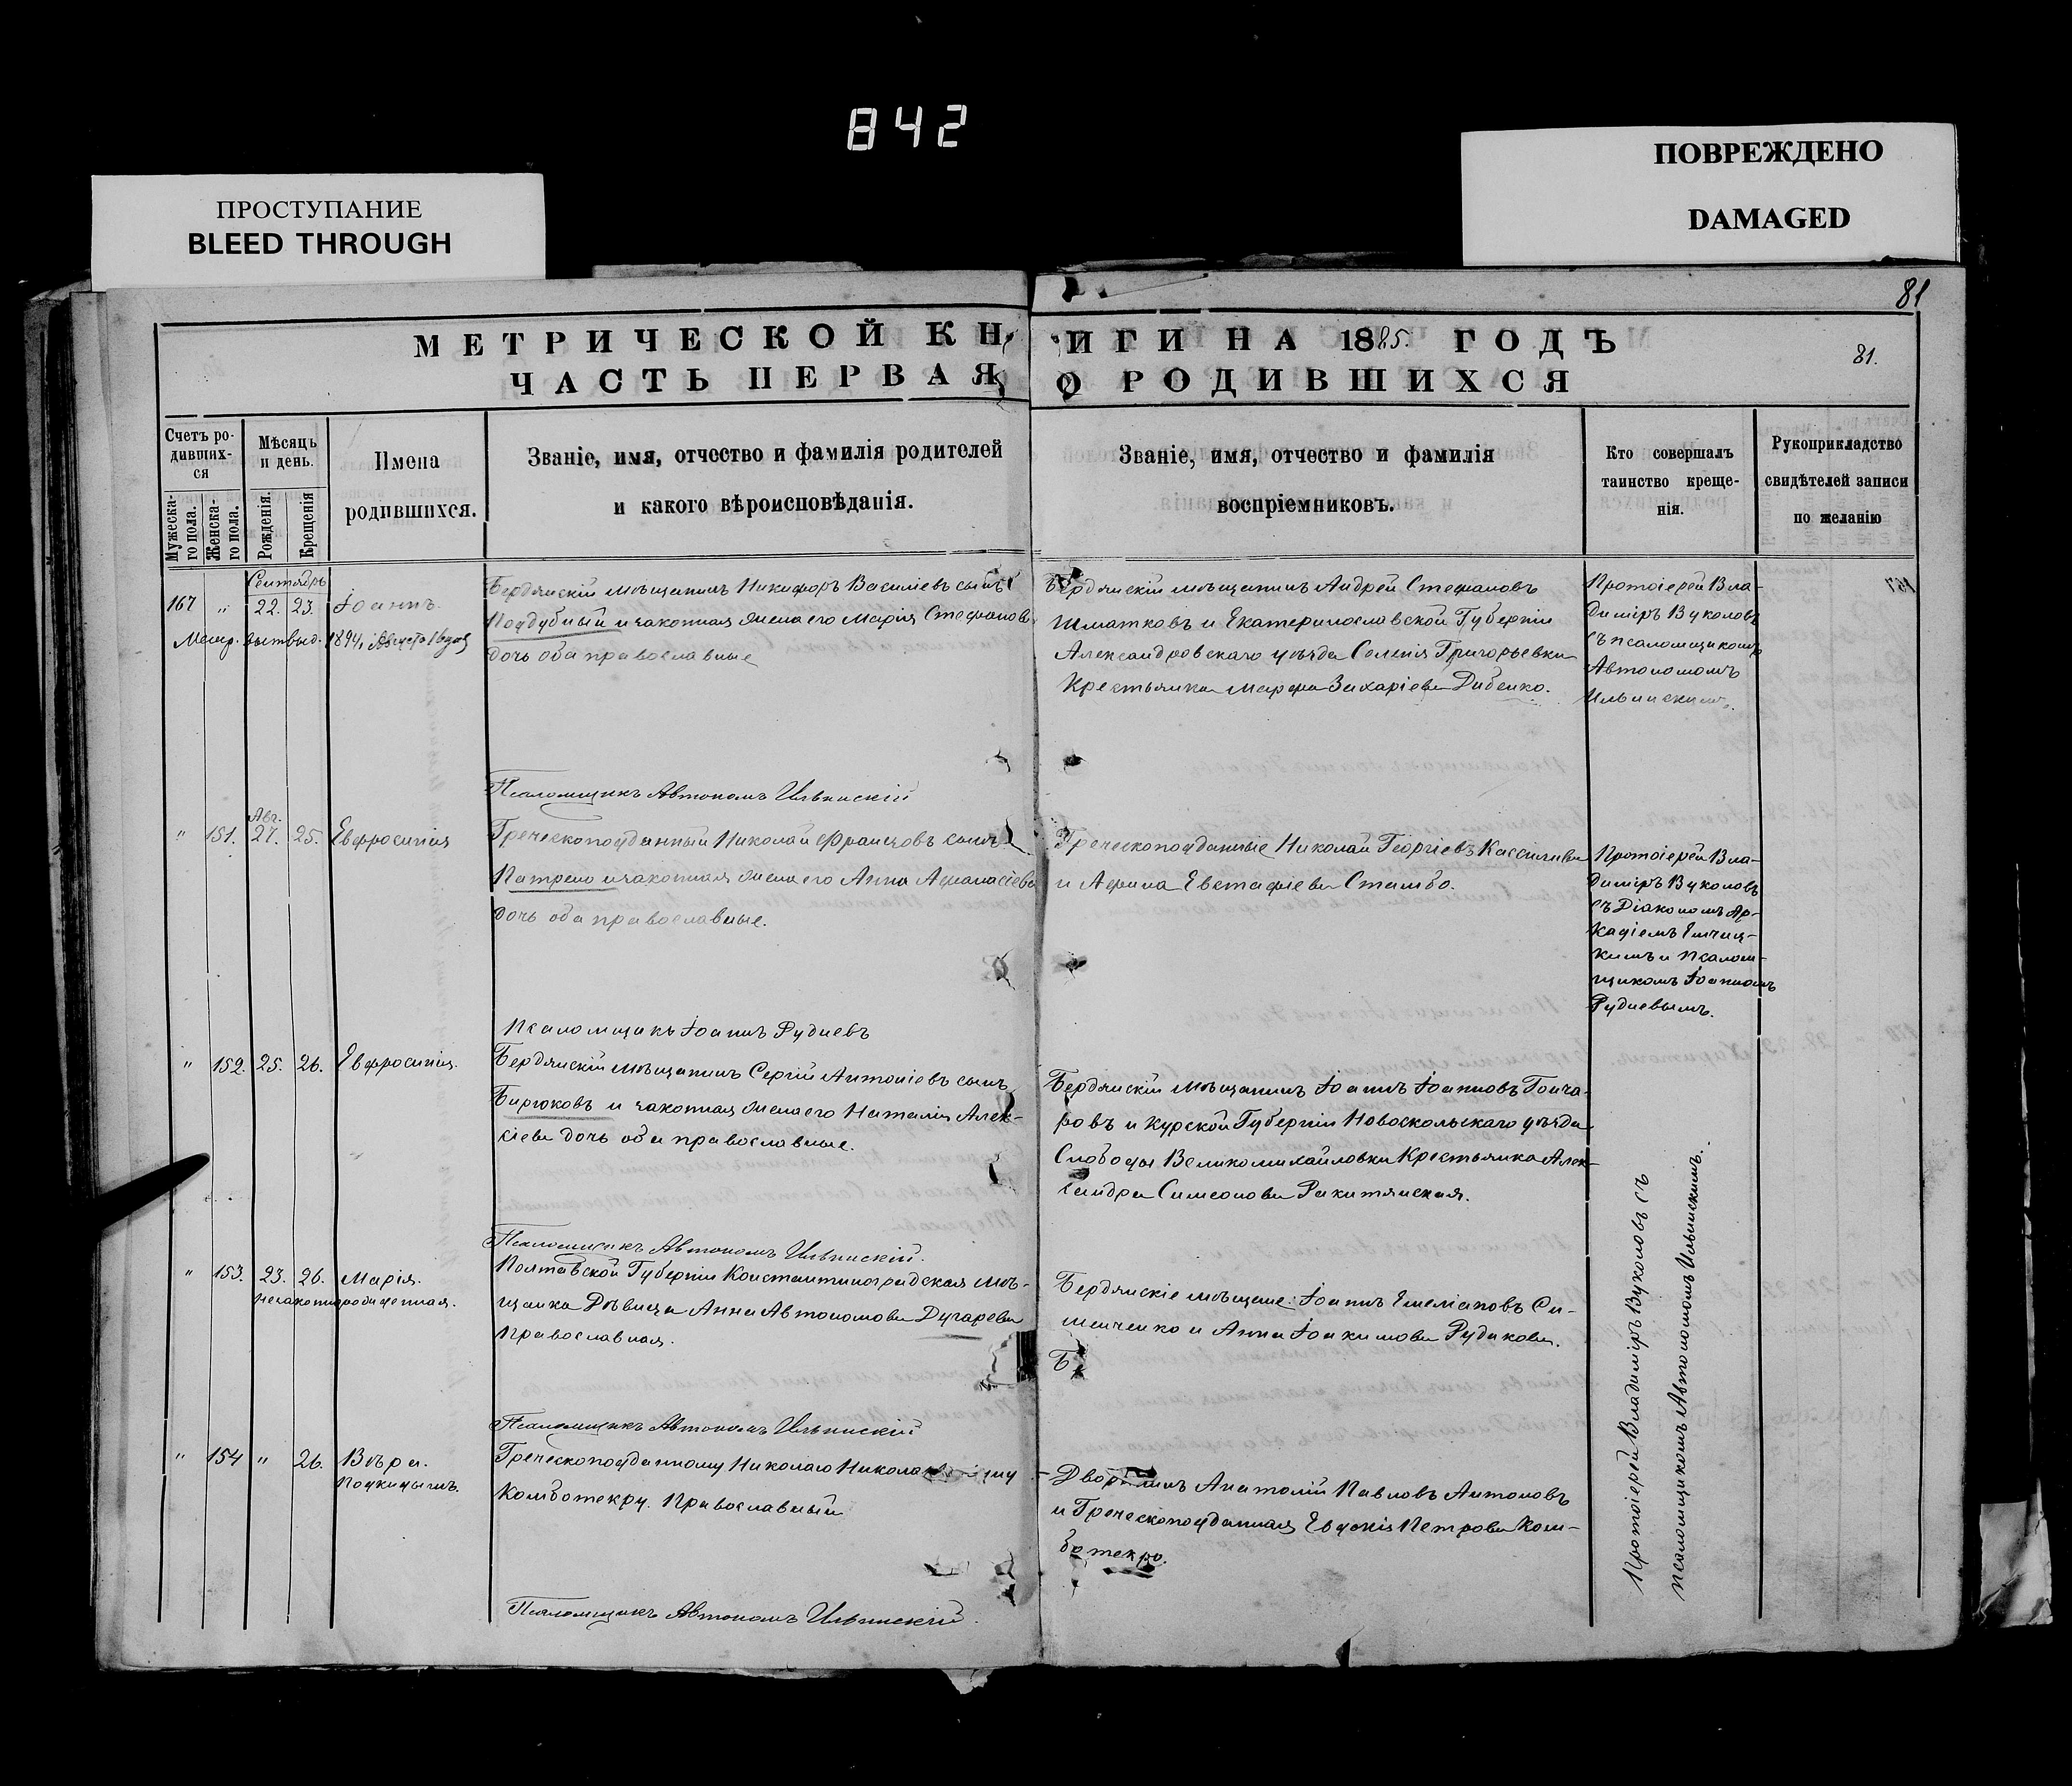 842
ПРОСТУПАНИЕ
BLEED THROUGH
ПОВРЕЖДЕНО
DAMAGED
81
МЕТРИЧЕСКОЙ КНИГИ НА 1885. ГОДЪ
81.
ЧАСТЬ ПЕРВАЯ О РОДИВШИХСЯ
Счетъ ро-
дивших-
ся
Мужеска-
го пола.
Женска-
го пола.
Мѣсяць
и день.
Рожденія.
Крещенія
Имена
родившихся.
Званіе, имя, отчество и фамилія родителей
и какого вѣроисповѣданія.
Званіе, имя, отчество и фамилія
воспріемниковъ.
Кто совершалъ
таинство креще-
нія.
Рукоприкладство
свидѣтелей записи
по желанію
Сентябрь
167 " 22. 23. Іоаннъ.
Метр. выт выд. 1894, Августа
Бердянскій мѣщанинъ Никифоръ Василіевъ сынъ
Поддубный и законная жена его Марія Стефанова
дочь оба православные
Бердянскій мѣщанинъ Андрей Стефановъ
Шматковъ и Екатеринославской Губерніи
Александровскаго уѣзда Селенія Григорьевки
Крестьянка Марфа Захаріева Дибенко.
Протоіерей Вла-
диміръ Вуколовъ
съ псаломщикомъ
Автономомъ
Ильинскимъ.
Псаломщикъ Автономъ Ильинскій
Авг.
" 151. 27. 25. Евфросинія
Греческоподданный Николай Францовъ сынъ
Патрело и законная жена его Анна Афанасіева
дочь оба православные.
Греческоподданные Николай Георгіевъ
и Афина Евстафіева Стамбо.
Протоіерей Вла-
диміръ Вуколовъ
съ Діакономъ Ар-
кадіемъ
кимъ и псалом-
щикомъ Іоанномъ
Рудневымъ.
Псаломщикъ Іоаннъ Рудневъ
" 152. 25. 26. Евфросинія.
Бердянскій мѣщанинъ Сергій Антоніевъ сынъ
Бирюковъ и законная жена его Наталія Алек-
сіева дочь оба православные.
Бердянскій мѣщанинъ Іоаннъ Іоанновъ Гонча-
ровъ и Курской Губерніи Новоскольскаго уѣзда
Слободы Великомихайловки Крестьянка Алек-
сандра Симеонова Ракитянская.
Псаломщикъ Автономъ Ильинскій.
" 153. 23. 26. Марія.
незаконнорожденная.
Полтавской Губерніи Константиноградская мѣ-
щанка Дѣвица Анна Автономова Дугарева
Православная.
Бердянскіе мѣщане: Іоаннъ Емеліановъ Си-
менченко и Анна Іоакимова Рудакова.
Б
Псаломщикъ Автономъ Ильинскій
" 154 " 26. Вѣра.
Подкидышъ.
Греческоподданному Николаю
Комботекру. Православный
Дворянинъ Анатолій Павловъ Антоновъ
и Греческоподданная Евдокія Петрова Ком-
ботекро.
Протоіерей Владиміръ Вуколовъ съ
псаломщикомъ Автономомъ Ильинскимъ.
Псаломщикъ Автономъ Ильинскій.